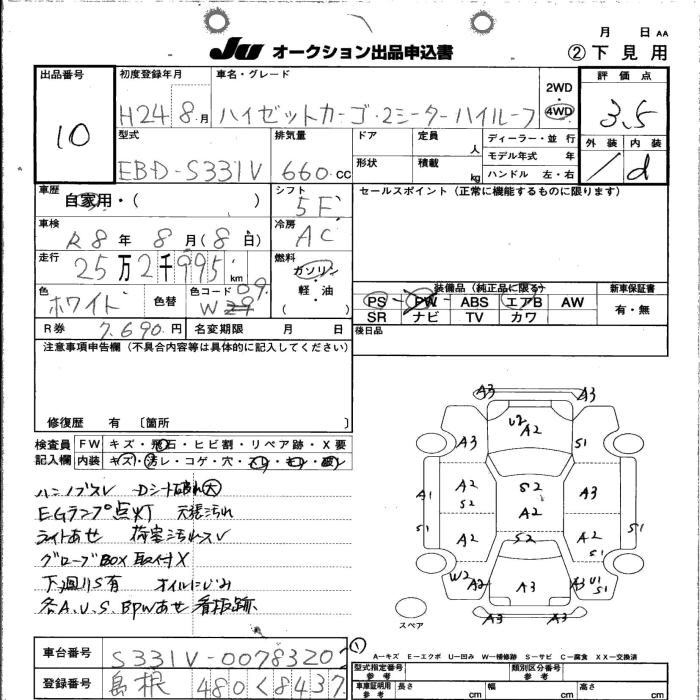 月 日 AA
JU オークション出品申込書 ②下見用
出品番号 10
初度登録年月 H24 8月
車名・グレード ハイゼットカーゴ・2シーターハイルーフ
2WD
4WD
評価点 3.5
外装 内装
/ d
型式 EBD-S331V
排気量 660 cc
ドア
定員 人
ディーラー・並行
モデル年式 年
形状
積載 kg
ハンドル 左・右
車歴 自家用・( )
シフト 5F
セールスポイント(正常に機能するものに限ります)
車検 R8年 8月(8日)
冷房 AC
走行 25万2千995km
燃料 ガソリン・軽・油
( )
色 ホワイト
色替
色コード W09
装備品(純正品に限る)
新車保証書
PS PW ABS エアB AW
有・無
SR ナビ TV カワ
R券 7,690円
名変期限 月 日
後日品
注意事項申告欄(不具合内容等は具体的に記入してください)
修復歴 有 〔箇所 〕
検査員記入欄
FW キズ・飛石・ヒビ割・リペア跡・X要
内装 キズ・汚レ・コゲ・穴・スレ・キレ・破レ
ハンノブスレ Dシート破れ大
EGランプ点灯 天張汚れ
ライトあせ 荷室汚れスレ
グローブBOX取付X
下廻りS有 オイルにじみ
各A.U.S.BpWあせ 看板跡
A3 A3
U2 A2
A3 S1
A1 A2 S2 S2 A3
A2
S1 A2 S2 A2 S1
S1
W2 A2 A3 A3 U1 S1
A3 A3
スペア
A−キズ E−エクボ U−凹み W−補修跡 S−サビ C−腐食 XX−交換済
車台番号 S331V-0078320
登録番号 島根 480 く 8437
型式指定番号 参考
類別区分番号 参考
車車証明用 参考
長さ cm 幅 cm 高さ cm